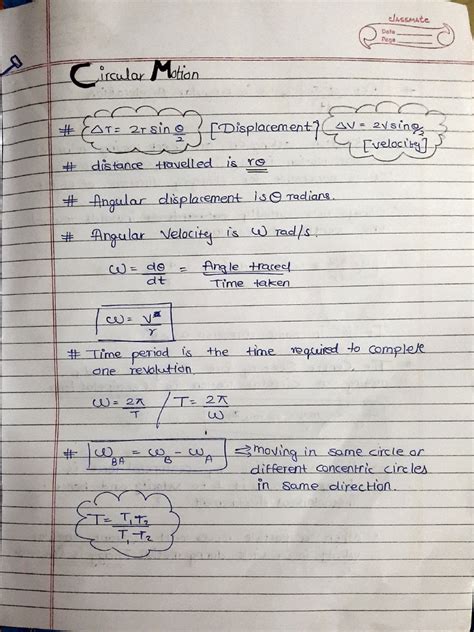 classmate
Date
Page
Circular Motion
# Δr = 2r sin θ/2 [Displacement] ΔV = 2V sin θ/2 [velocity]
# distance travelled is rθ
# Angular displacement is θ radians.
# Angular Velocity is ω rad/s.
ω = dθ/dt = Angle traced / Time taken
ω = V/r
# Time period is the time required to complete
one revolution.
ω = 2π/T / T = 2π/ω
# ω_BA = ω_B - ω_A ⇒ moving in same circle or
different concentric circles
in same direction.
T = T₁T₂ / T₁-T₂